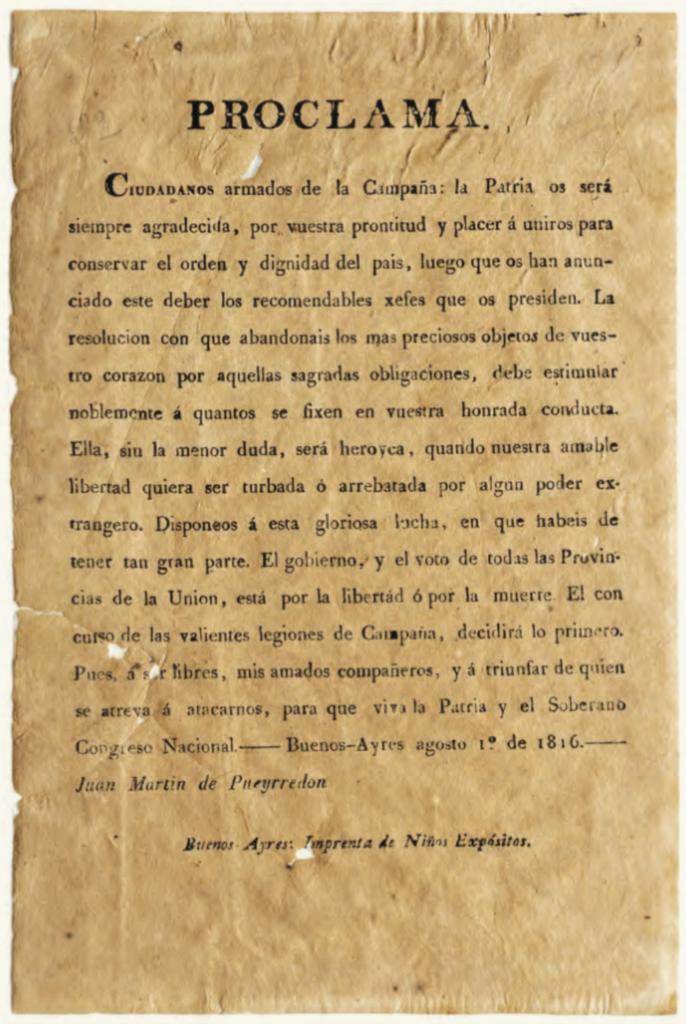 PROCLAMA.
CIUDADANOS armados de la Campaña: la Patria os será
siempre agradecida, por vuestra prontitud y placer á uniros para
conservar el orden y dignidad del pais, luego que os han anun-
ciado este deber los recomendables xefes que os presiden. La
resolucion con que abandonais los mas preciosos objetos de vues-
tro corazon por aquellas sagradas obligaciones, debe estimular
noblemente á quantos se fixen en vuestra honrada conducta.
Ella, sin la menor duda, será heroyca, quando nuestra amable
libertad quiera ser turbada ó arrebatada por algun poder ex-
trangero. Disponeos á esta gloriosa lucha, en que habeis de
tener tan gran parte. El gobierno, y el voto de todas las Provin-
cias de la Union, está por la libertád ó por la muerte. El con
curso de las valientes legiones de Campaña, decidirá lo primero.
Pues, á ser libres, mis amados compañeros, y á triunfar de quien
se atreva á atacarnos, para que viva la Patria y el Soberano
Congreso Nacional.—— Buenos-Ayres agosto 1º de 1816.——
Juan Martin de Pueyrredon
Buenos Ayres: Imprenta de Niños Expósitos.